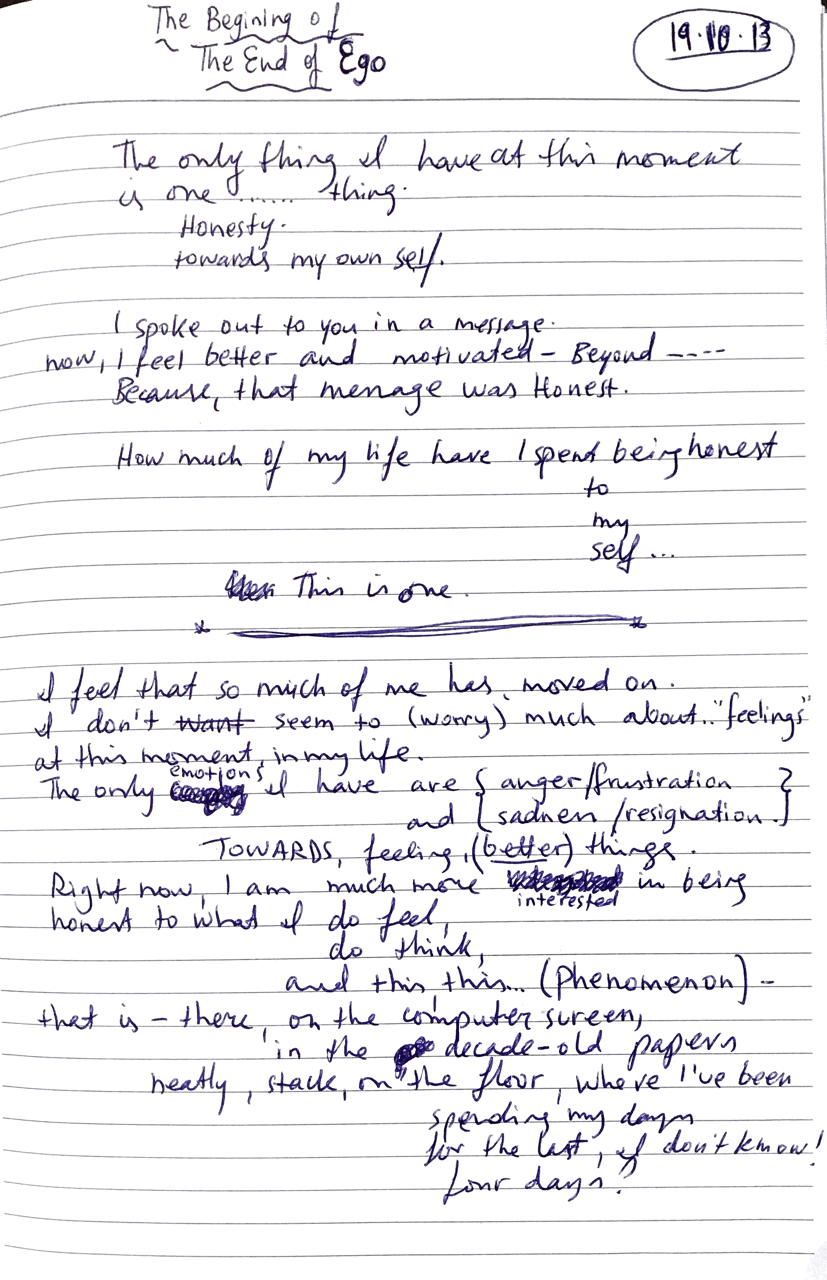 The Begining of
The End of Ego
19.10.13
The only thing I have at this moment
is one ...... thing.
Honesty.
towards my own self.
I spoke out to you in a message.
now, I feel better and motivated - Beyond ----
Because, that message was Honest.
How much of my life have I spent being honest
to
my
self ...
This is one.
I feel that so much of me has moved on.
I don't want seem to (worry) much about.. "feelings"
at this moment, in my life.
emotions
The only I have are { anger/frustration }
and [ sadness/resignation. ]
TOWARDS, feeling, (better) things.
Right now, I am much more in being
interested
honest to what I do feel,
do think,
and this this... (Phenomenon) -
that is - there, on the computer sureen,
in the decade-old papers
neatly, stack, on the floor, where I've been
spending my days
for the last, I don't know!
four days?